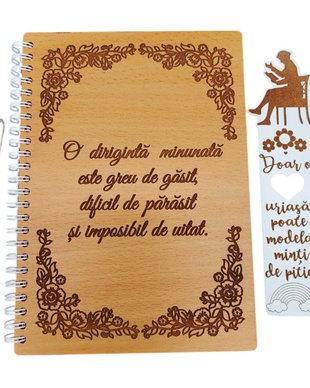 O dirigintă minunată
este greu de găsit,
dificil de părăsit
și imposibil de uitat.
Doar o
uriașă
poate
modela
minți
de pitici